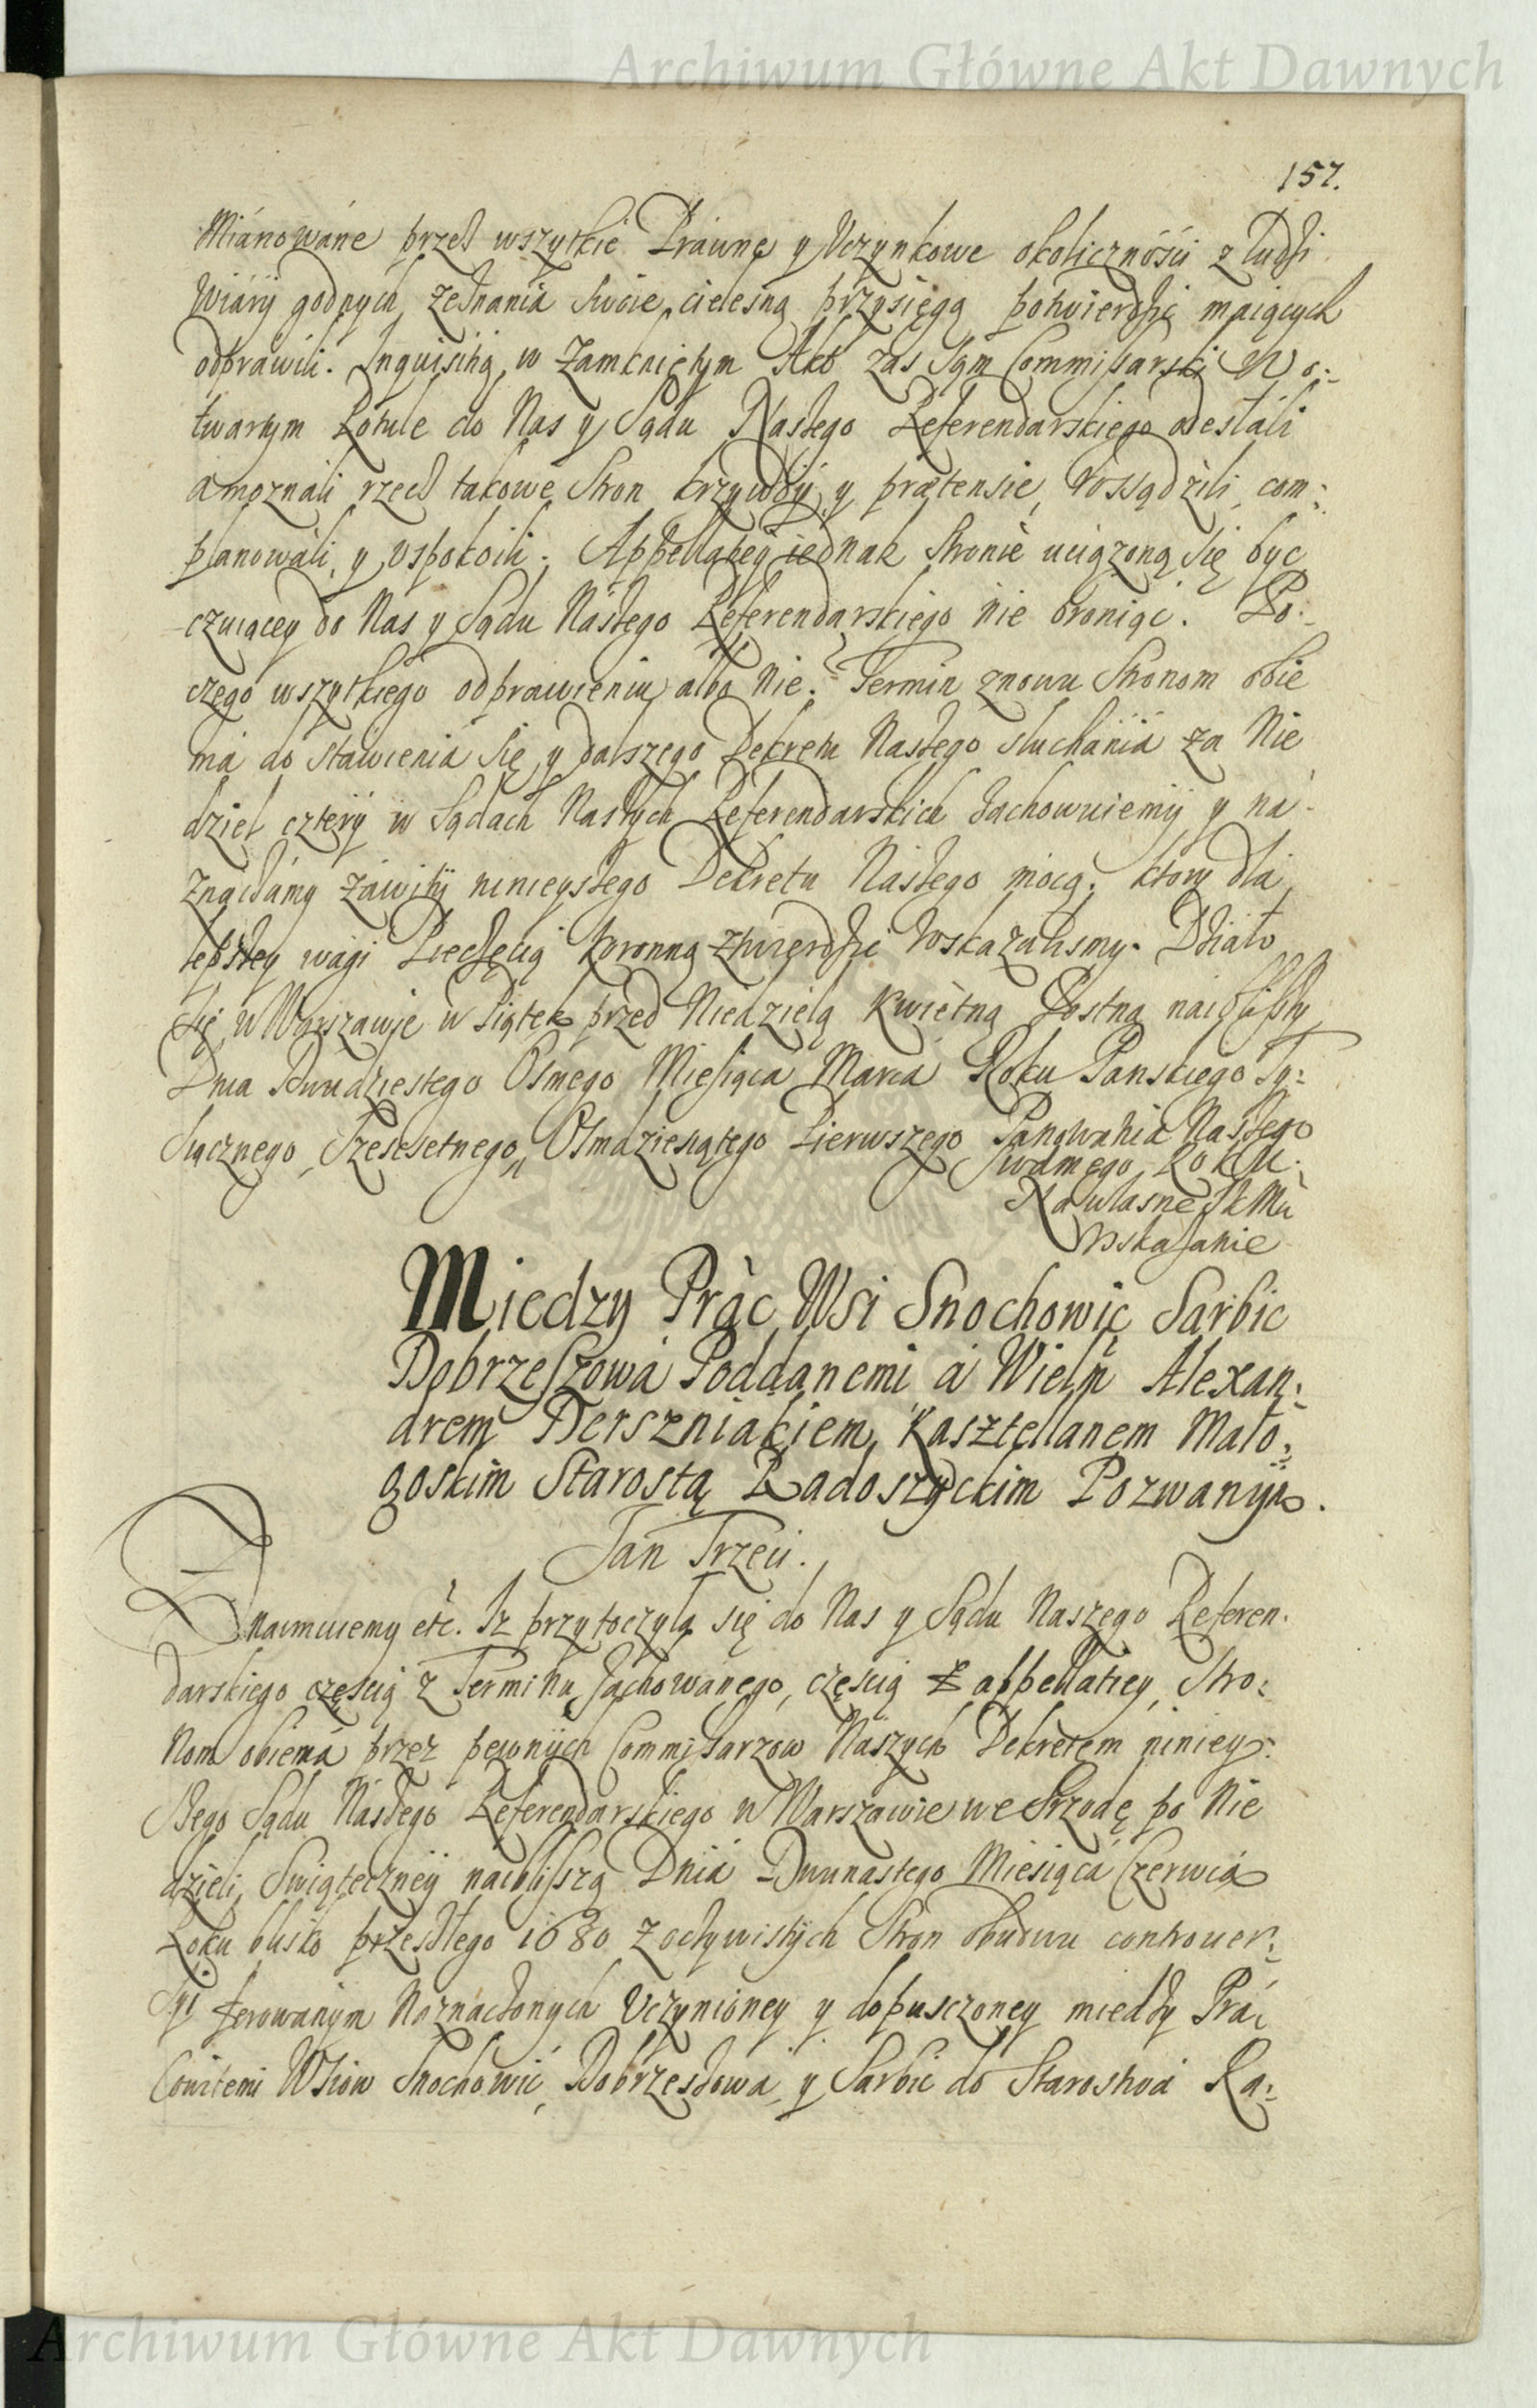 Archiwum Główne Akt Dawnych
157.
Mianowane przez wszytkie Prawne y Uczynkowe okolicznosci z ludzi
Wiary godnych, zeznania swoie cielesną przysięgą potwierdzic maiących
odprawili. Inquisitią w zamkniętym Akt zas sąm Commissarski W o:
twartym Rotule do Nas y Sądu Naszego Referendarskiego odesłali
a moznali rzecz takowe Stron krzywdy y prætensie, rossądzili, com:
planowali, y uspokoili. Appellatiey iednak Stronie uciązoną się byc
czuiącey do Nas y Sądu Naszego Referendarskiego nie broniąc. Po:
czego wszytkiego odprawieniu albo nie. Termin znowu Stronom obie
ma do stawienia się y dalszego Dekretu Naszego słuchania za Nie
dziel cztery w Sądach Naszych Referendarskich zachowuiemy y na:
znaczamy zawity ninieyszego Dekretu Naszego mocą, ktory dla
lepszey wagi Pieczęcią Koronną ztwierdzic roskazalismy. Działo
się w Warszawie w Piątek przed Niedzielą Kwietną Postną naiblizszy
Dnia Dwudziestego Osmego Miesiąca Marca Roku Panskiego Ty:
siącznego Szescsetnego, Osmdziesiątego Pierwszego Panowania Naszego
Siodmego Roku.
Na własne JKMci
roskazanie
Miedzy Prac Wsi Snochowic Sarbic
Dobrzeszowa Poddanemi a Wielm Alexan:
drem Derszniakiem, Kasztellanem Mało:
goskim Starostą Radoszyckim Pozwanym.
Jan Trzeci.
Oznaimuiemy etc. Iz przytoczyła się do Nas y Sądu Naszego Referen:
darskiego częscią z Terminu zachowanego, częscią z appellatiey, Stro:
nom obiema przez pewnych Commissarzow Naszych Dekretem niniey:
szego Sądu Naszego Referendarskiego w Warszawie we Srzodę po Nie
dzieli Swiąteczney naiblisszą Dnia Dwunastego Miesiąca Czerwca
Roku blisko przeszłego 1680 z oczywistych Stron obudwu controuer:
syi ferowanym Naznaczonych Uczynioney y dopusczoney miedzy Pra
cowitemi Wsiow Snochowic, Dobrzeszowa, y Sarbic do Starostwa Ra:
Archiwum Główne Akt Dawnych